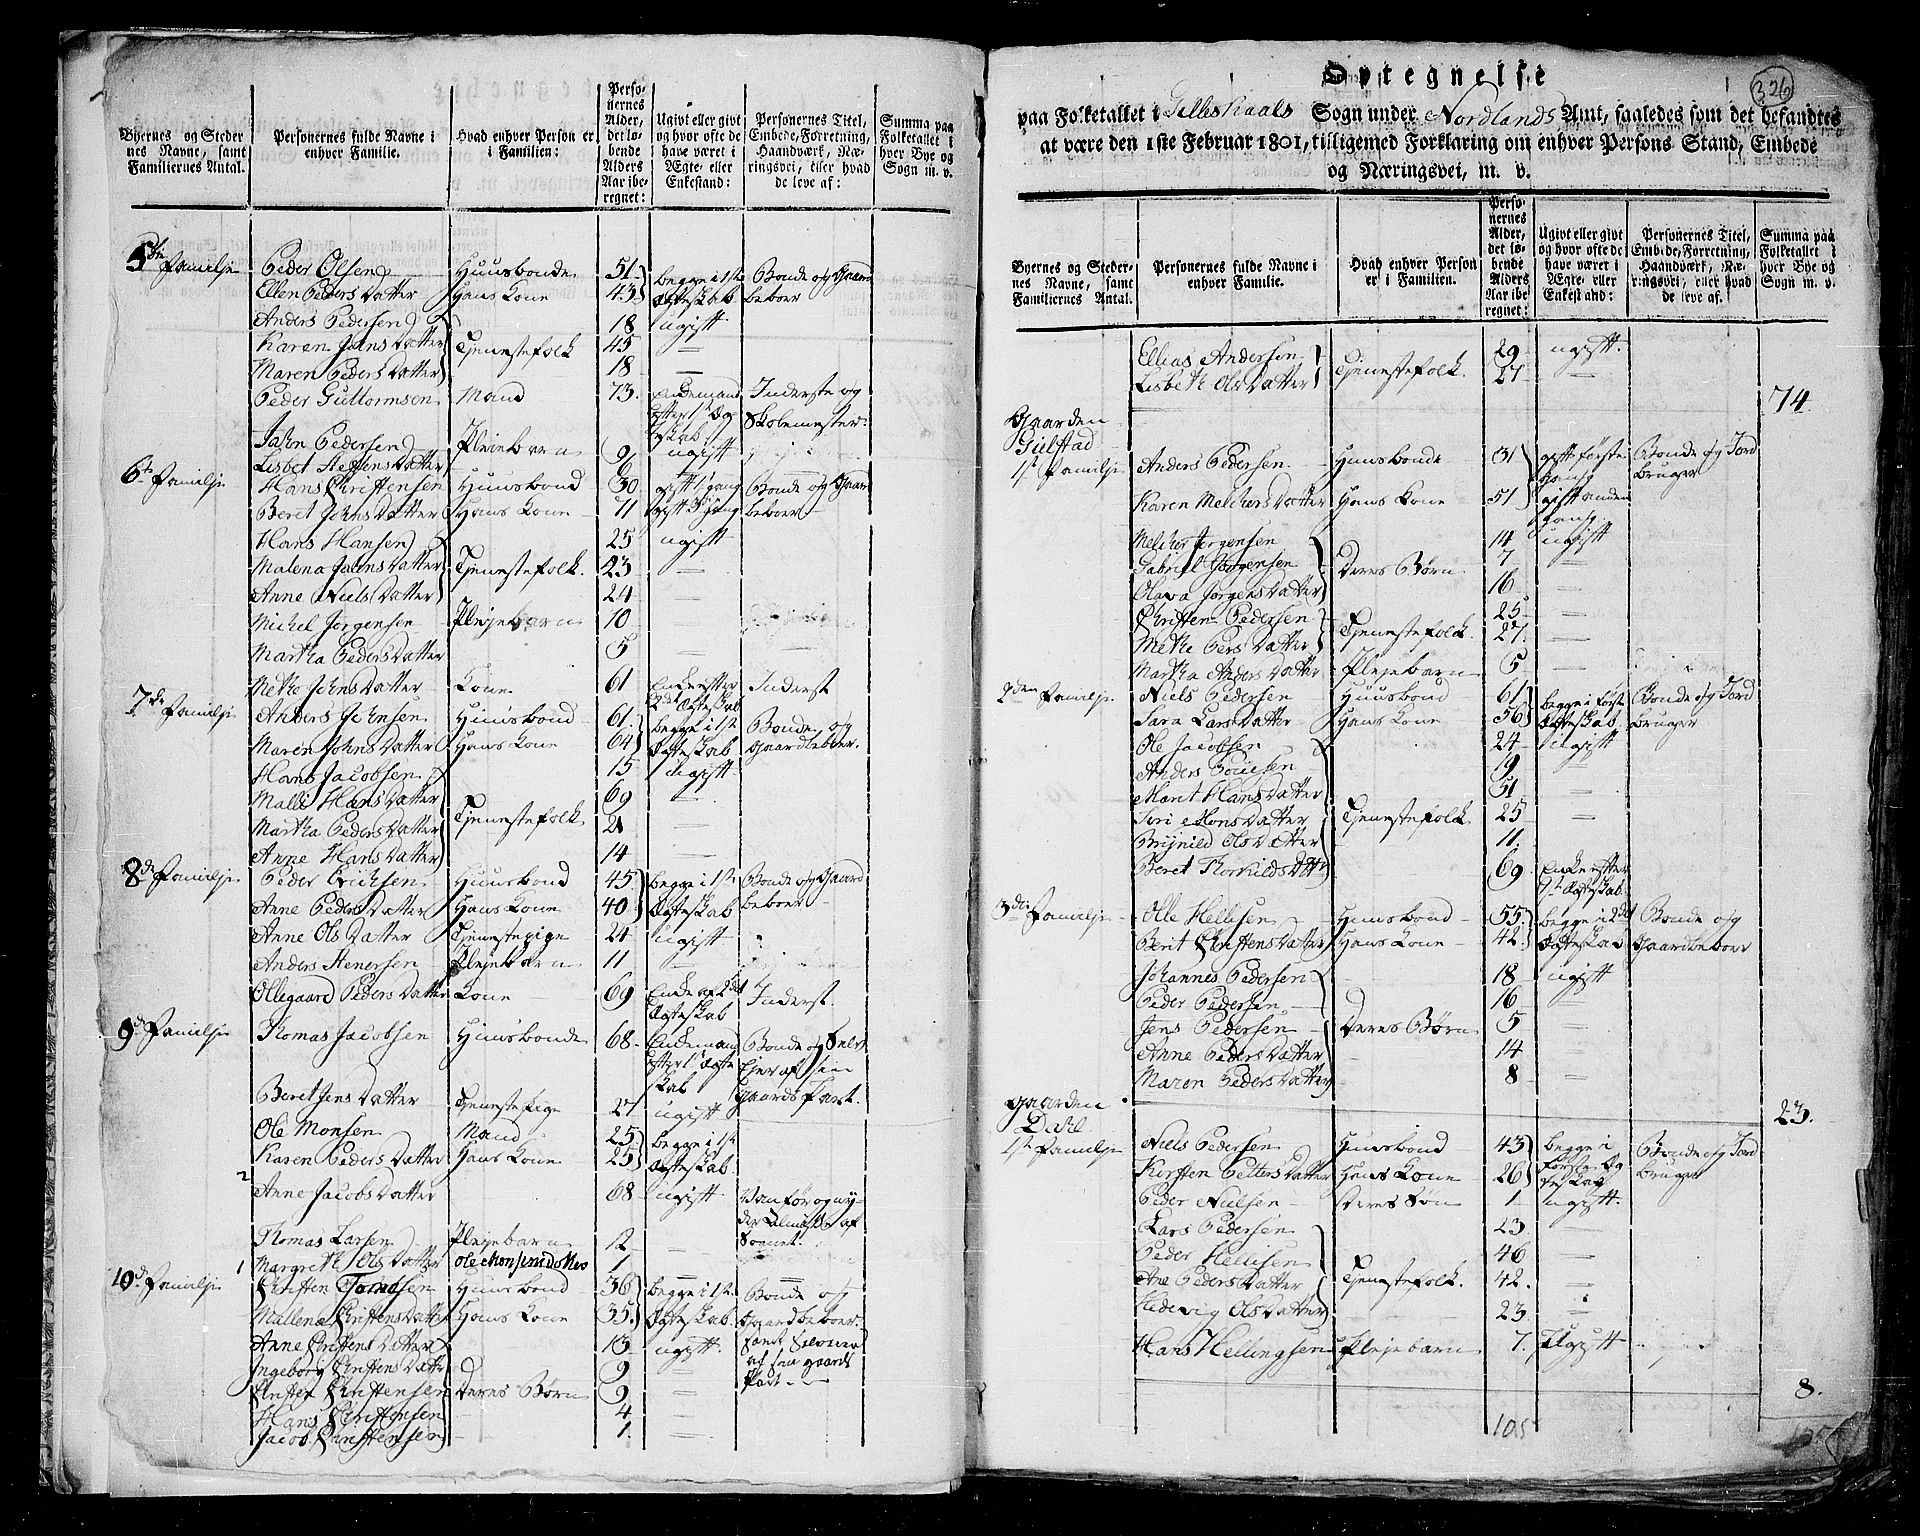 Byernes og Steder nes Navne, samt Familiernes Antal.
Personernes fulde Navne i enhver Familie.
Hvad enhver Person er i Familien:
Personernes Alder, det løbende Alders Aar iberegnet:
Ugivt eller givt og hvor ofte de have været i Ægte- eller Enkestand:
Personernes Titel, Embede, Forretning, Haandværk, Næringsvei, eller hvad de leve af:
Summa paa Folketallet i hver Bye og Sogn m. v.
5te Familje Peder Olsen Huusbonde 51 begge i 1ste Bonde og Gaard
Ellen Peders Datter Hans Kone 43 Ægteskab beboer
Anders Pedersen 18 ugift
Karen Jans Datter Tjenestefolk 45 —
Maren Peders Datter 18 —
Peder Guttormsen Mand 73 Enkemand Inderste og
efter 1ste Æg Skolemester
teskab
John Pedersen Plejebarn 9 ugift
Lisbet Steffens Datter 6
6te Familje Hans Christensen Huusbond 30 gift 1 gang Bonde og Gaard
Beret Johns Datter Hans Kone 71 gift 3 gang beboer
Hans Hansen 25 ugift
Malena Jans Datter Tjenestefolk. 23 —
Anne Niels Datter 24 —
Michel Jørgensen Plejebarn 10 —
Martha Peders Datter 5 —
Methe Johns Datter Kone 61 Enke efter Inderst
2det Ægteskab
7de Familje Anders Johnsen Huusbond 61 begge i 1ste Bonde og
Maren Johns Datter Hans Kone 64 Ægteskab gaardbeboer.
Hans Jacobsen 15 ugift
Malli Hans Datter 69 —
Martha Peders Datter Tjenestefolk 21 —
Anne Hans Datter 14 —
8de Familje Peder Erichsen Huusbond 45 begge i 1ste Bonde og Gaard
Anne Peders Datter Hans Kone 40 Ægteskab beboer
Anne Ols Datter Tjenestepige 24 ugift
Anders Stenersen Plejebarn 11 —
Ollegaard Peders Datter Kone 69 Enke af 2det Inderst.
Ægteskab
9de Familje Thomas Jacobsen Huusbonde 68 Enkemand Bonde og Selv
efter 1ste Ægte Ejer af sin
skab Gaards Part.
Beret Jens Datter Tjenestepige 27 ugift
Ole Monsen Mand 25 begge i 1ste
Karen Peders Datter Hans Kone 25 Ægteskab
2 Anne Jacobs Datter 68 ugift Vanfør og ny
der Almisse af
Sognet.
Thomas Larsen Plejebarn 12 —
1 Margreth Ols Datter Ole Monsens 1
10de Familje Christen Huusbond 36 begge i 1ste Bonde og
Mallena Christens Datter Hans Kone 35 Ægteskab Gaardbeboer
Anne Christens Datter 13 ugift samt Selvejer
Ingeborg Christens Datter 9 — af sin gaards
Christen Christensen Deres Børn 9 — Part
Hans Christensen 4
Jacob Christensen 1
326
Optegnelse
paa Folketallet i Gilleskaals Sogn under Nordlands Amt, saaledes som det befandtes
at være den 1ste Februar 1801, tilligemed Forklaring om enhver Persons Stand, Embede
og Næringsvei, m. v.
Byernes og Stedernes Navne, samt Familiernes Antal.
Personernes fulde Navne i enhver Familie.
Hvad enhver Person er i Familien.
Personernes Alder, det løbende Alders Aar iberegnet:
Ugivt eller givt og hvor ofte de have været i Ægte- eller Enkestand:
Personernes Titel, Embede, Forretning, Haandværk, Næringsvei, eller hvad de leve af.
Summa paa Folketallet i hver Bye og Sogn m. v.
Ellias Andersen Tjenestefolk. 29 ugift.
Lisbeth Ols Datter 27
74.
Gaarden
Gielstad
1ste Familje Anders Pedersen Huusbonde 31 gift første Bonde og Jord
Gang bruger
Karen Melchers Datter Hans Kone 51 gift anden
Gang
Melcher Jørgensen 14 ugift
Gabriel Jørgensen Deres Børn 7 —
Olava Jørgens Datter 16 —
Christen Pedersen Tjenestefolk. 25 —
Methe Pers Datter 27 —
Martha Anders Datter Plejebarn 5 —
2den Familje Niels Pedersen Huusbond 61 begge i først Bonde og Jord
Sara Lars Datter Hans Kone 56 Ægteskab bruger
Ole Jacobsen 24 ugift
Anders Povelsen 19 —
Marit Hans Datter 51 —
Siri Mons Datter Tjenestefolk 25 —
Brynild Ols Datter 11 —
Beret Thorkilds Dttr 69 Enke efter
1ste Ægteskab
3die Familje Olle Hellesen Huusbond 55 begge i 2det Bonde og
Berit Christens Datter Hans Kone 42 Ægteskab Gaardbeboer
Johannes Pedersen 18 ugift
Peder Pedersen 16 —
Jens Pedersen Deres Børn 5 —
Anne Peders Datter 14 —
Maren Peders Datter 8 —
23.
Gaarden
Dahl
1ste Familje Niels Pedersen Huusbond 43 begge i Bonde og Jord
Kersten Petters Datter Hans Kone 26 første Æg bruger
teskab
Peder Nielsen Deres Søn 1 ugift.
Lars Pedersen 23 —
Peder Hellesen 46 —
Ane Peders Datter Tjenestefolk. 42 —
Hedevig Ols Datter 23 —
Hans Hellingsen Plejebarn 7. ugift
8.
105
105